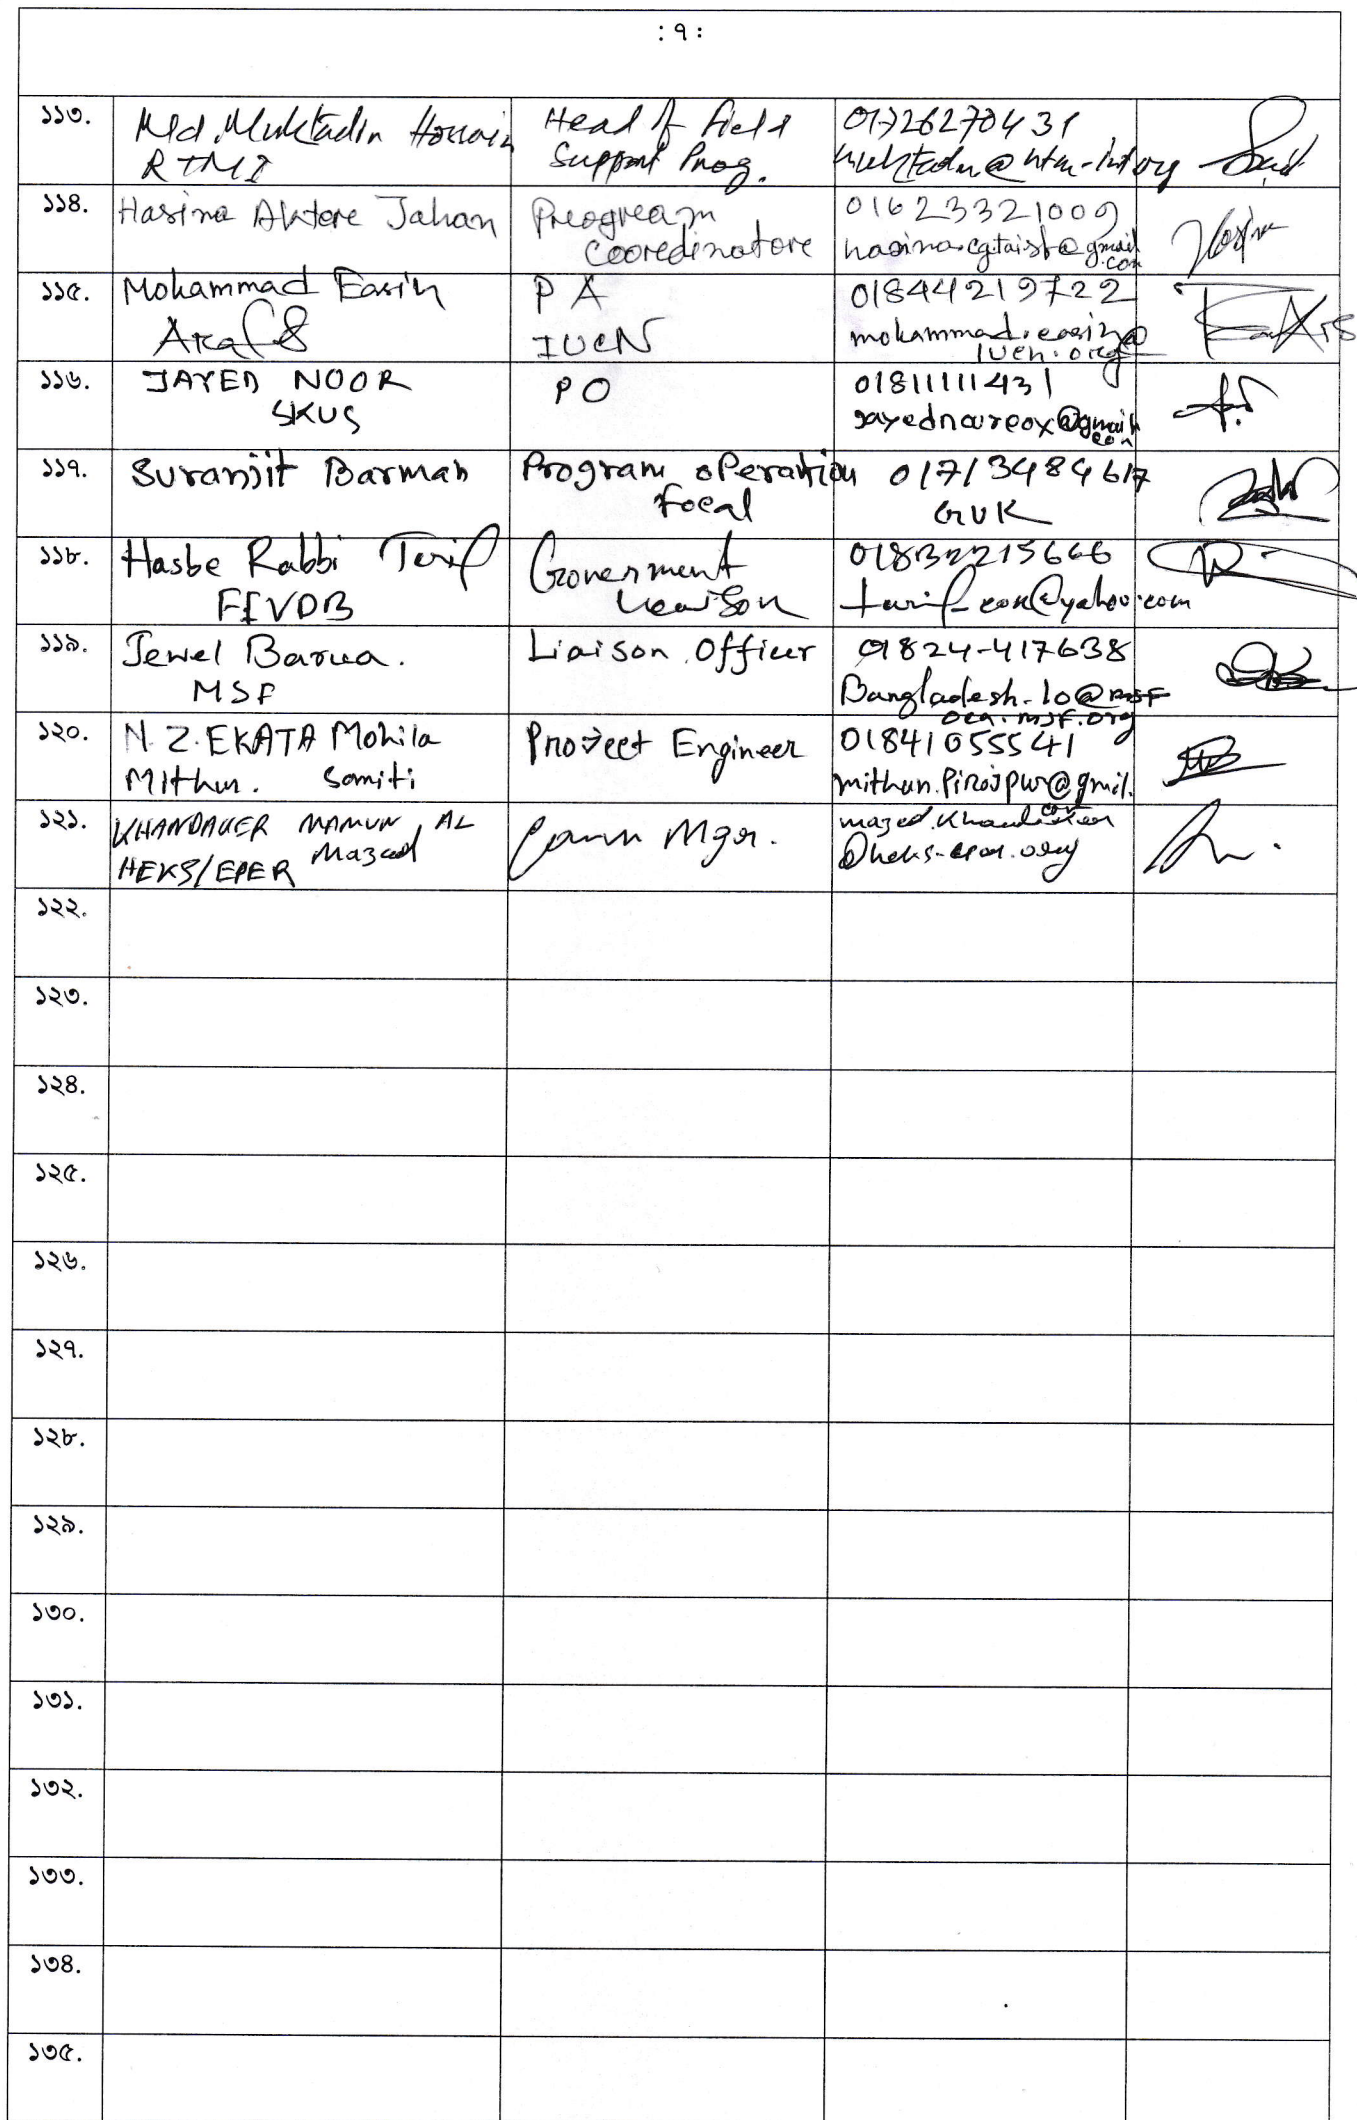 : ৭ :
১১৩.
Md. Muktadin Hossain
RTMI
Head of field
Support Prog.
01726270431
১১৪.
Hasina Aktere Jahan
Preogream
Cooredinatore
01623321009
hasina.cgtaist@gmail
.com
১১৫.
Mohammad Easin
Araf
PA
IUCN
01844219722
mohammad.easin@
iucn.org
১১৬.
JAYED NOOR
SKUS
PO
01811111431
১১৭.
Suranjit Barman
Program operation
Focal
01713484617
GUK
১১৮.
Hasbe Rabbi Tarif
FIVDB
Government
01832215666
১১৯.
Jewel Barua.
MSF
Liaison Officer
01824-417638
Bangladesh-lo@msf
oca.msf.org
১২০.
N.Z. EKATA Mohila
Mithun. Somiti
Project Engineer
01841055541
mithun.Pirojpur@gmil.
com
১২১.
KHANDAKER MAMUN AL
Mazed
HEKS/EPER
Mgr.
১২২.
১২৩.
১২৪.
১২৫.
১২৬.
১২৭.
১২৮.
১২৯.
১৩০.
১৩১.
১৩২.
১৩৩.
১৩৪.
১৩৫.